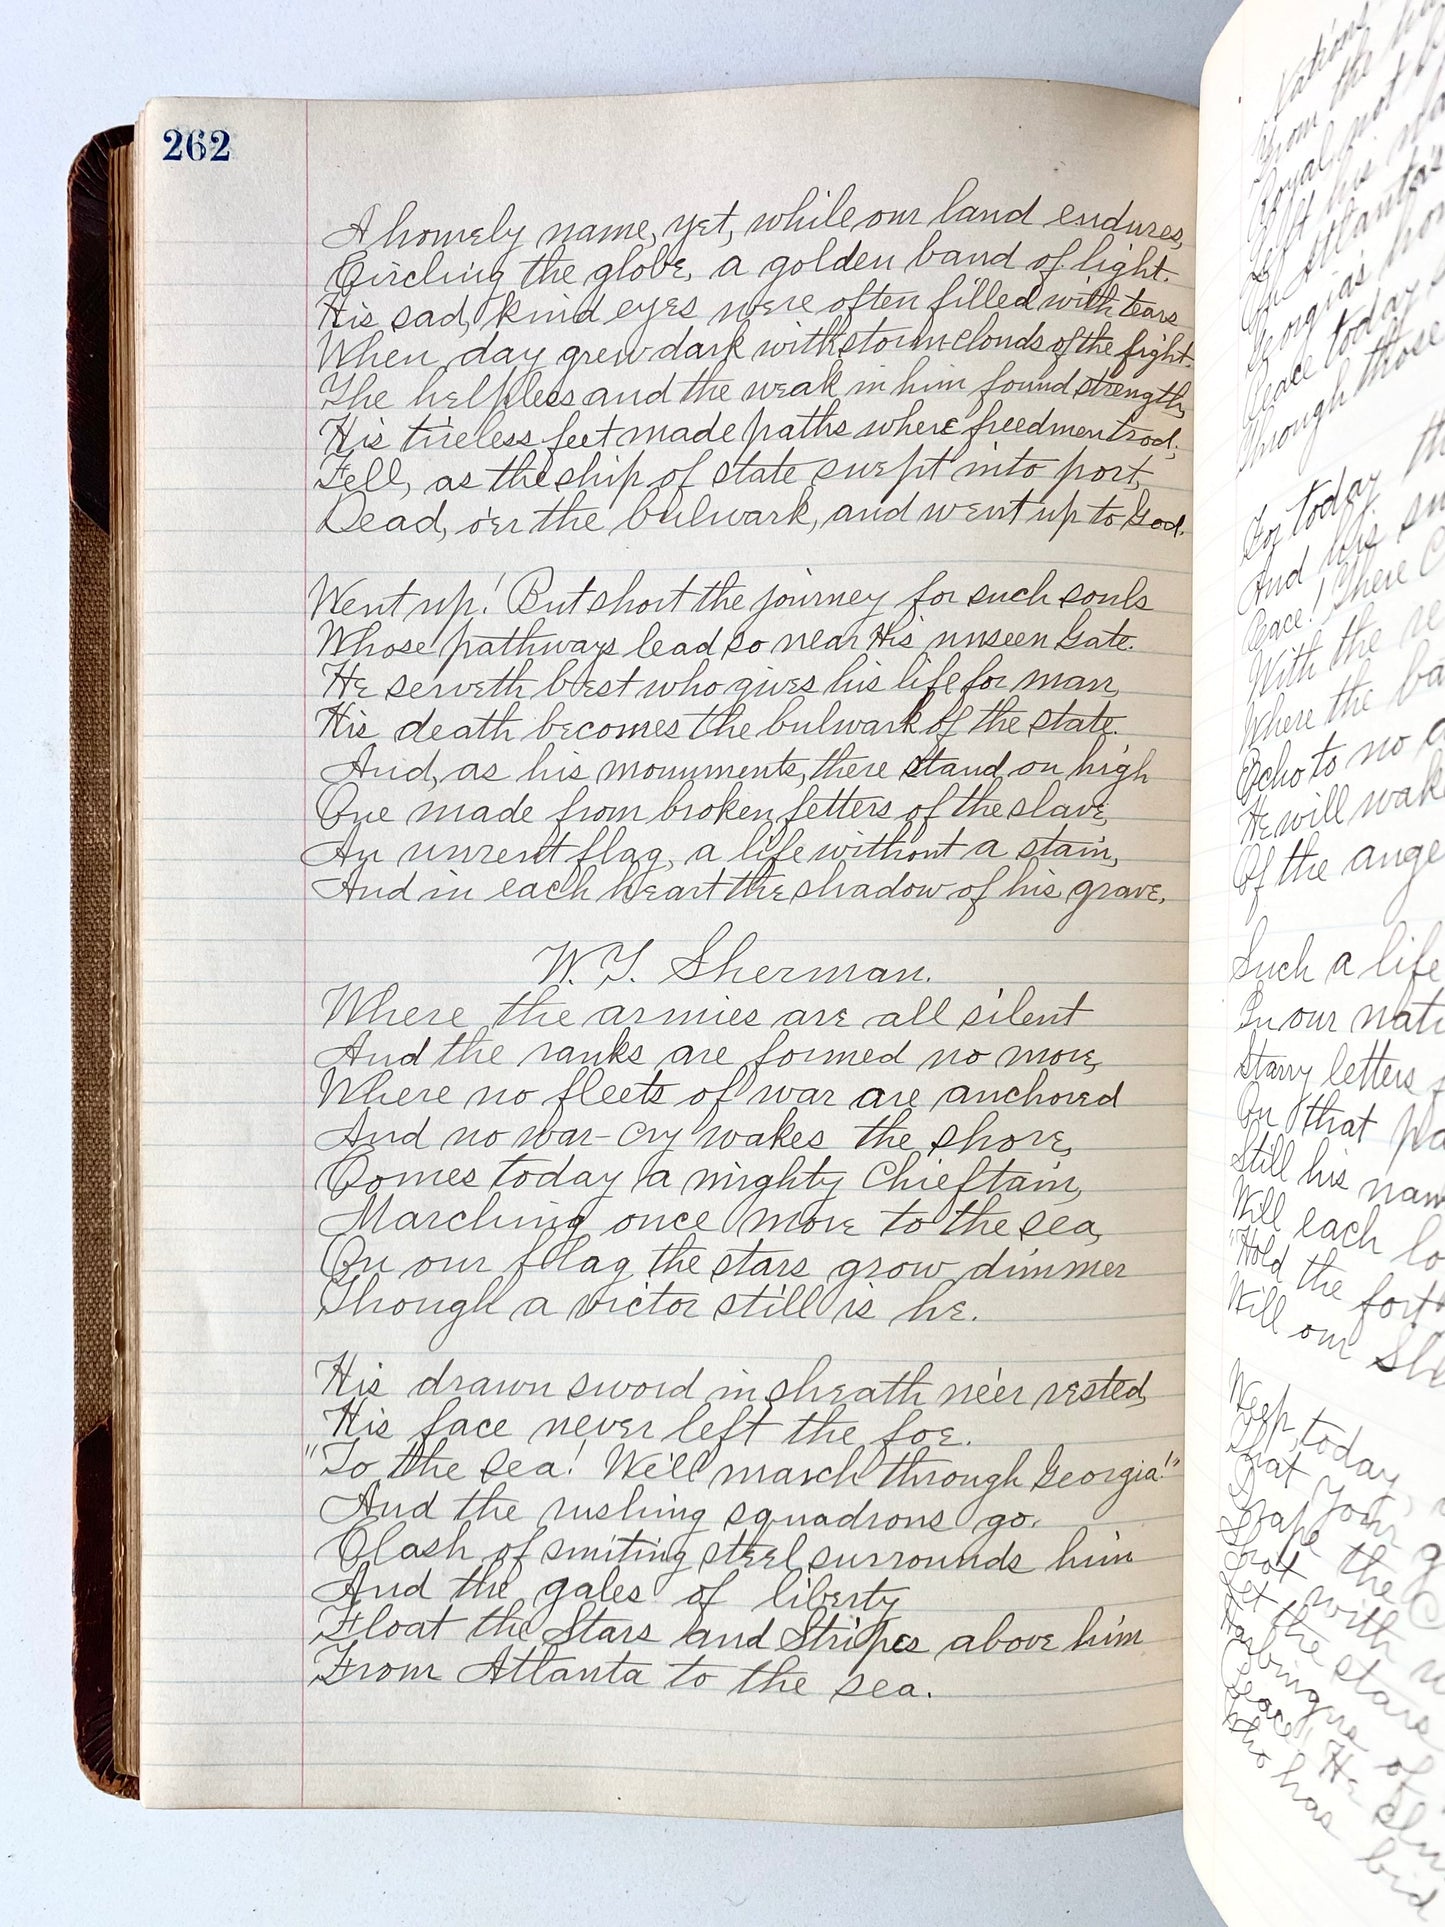 262
A homely name, yet, while our land endures,
Circling the globe, a golden band of light.
His sad, kind eyes were often filled with tears
When day grew dark with storm-clouds of the fight.
The helpless and the weak in him found strength,
His tireless feet made paths where freedmen trod;
Fell, as the ship of state swept into port,
Dead, o'er the bulwark, and went up to God.
Went up! But short the journey for such souls
Whose pathways lead so near His unseen Gate.
He serveth best who gives his life for man,
His death becomes the bulwark of the state.
And, as his monuments, there stand on high
One made from broken fetters of the slave,
An unrent flag, a life without a stain,
And in each heart the shadow of his grave.
W. T. Sherman.
Where the armies are all silent
And the ranks are formed no more,
Where no fleets of war are anchored
And no war-cry wakes the shore,
Comes today a mighty Chieftain,
Marching once more to the sea,
On our flag the stars grow dimmer
Though a victor still is he.
His drawn sword in sheath ne'er rested,
His face never left the foe.
"To the sea! We'll march through Georgia!"
And the rushing squadrons go.
Clash of smiting steel surrounds him
And the gales of liberty
Float the Stars and Stripes above him
From Atlanta to the sea.
Nations'
From the
Royal, not
Left his
On Atlanta's
Georgia's
Peace today
Through those
For today
And his
Peace! There
With the
Where the
Echo to no
He will
Of the
Such a life
In our
Starry letters
On that
Still his
Will each
"Hold the
Will our
Weep, today,
That your
Drape the
Shot with
Let the stars
Harbingers of
Peace! He
Who has bid